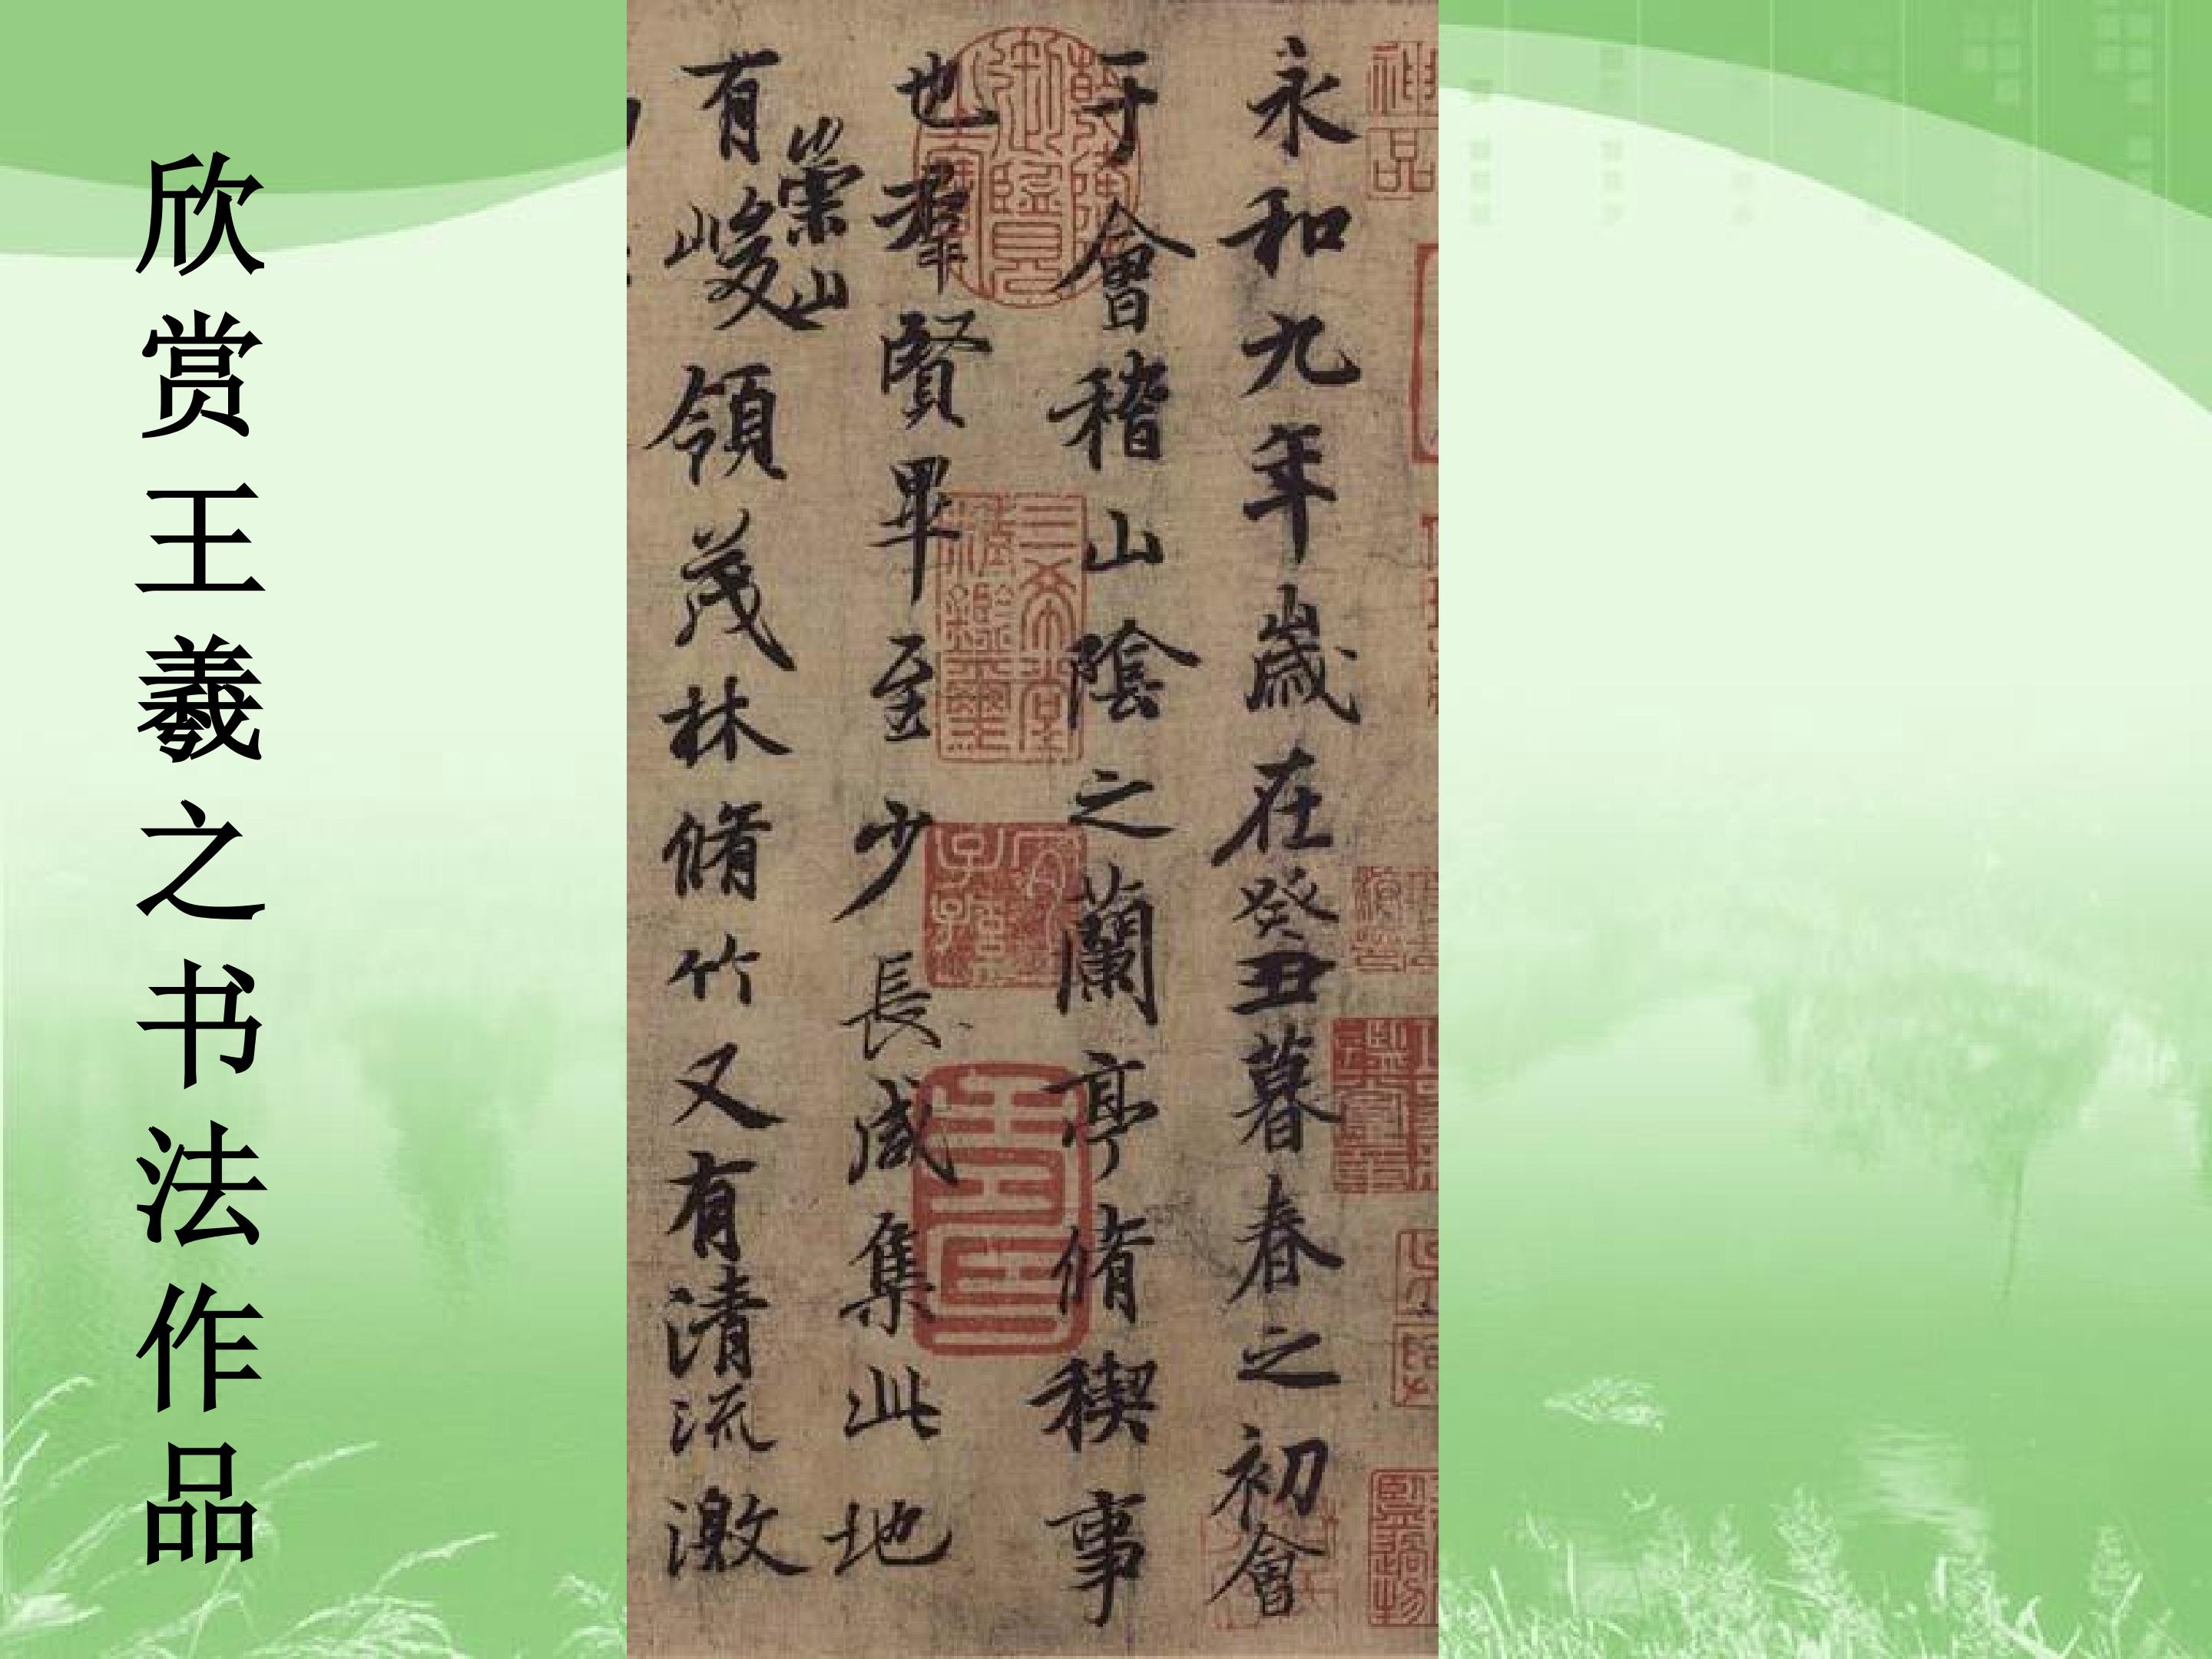 欣赏王羲之书法作品
永和九年歲在癸丑暮春之初會
于會稽山陰之蘭亭脩稧事
也羣賢畢至少長咸集此地
崇山
有峻領茂林脩竹又有清流激
神品
三希堂精鑑璽
宜子孫